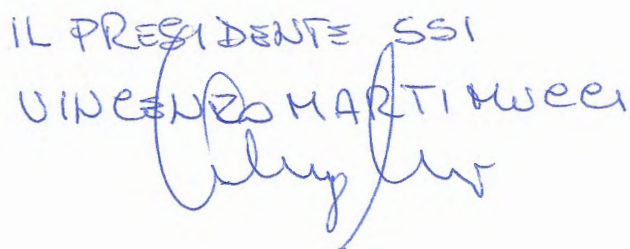 IL PRESIDENTE SSI
VINCENZO MARTIMUCCI